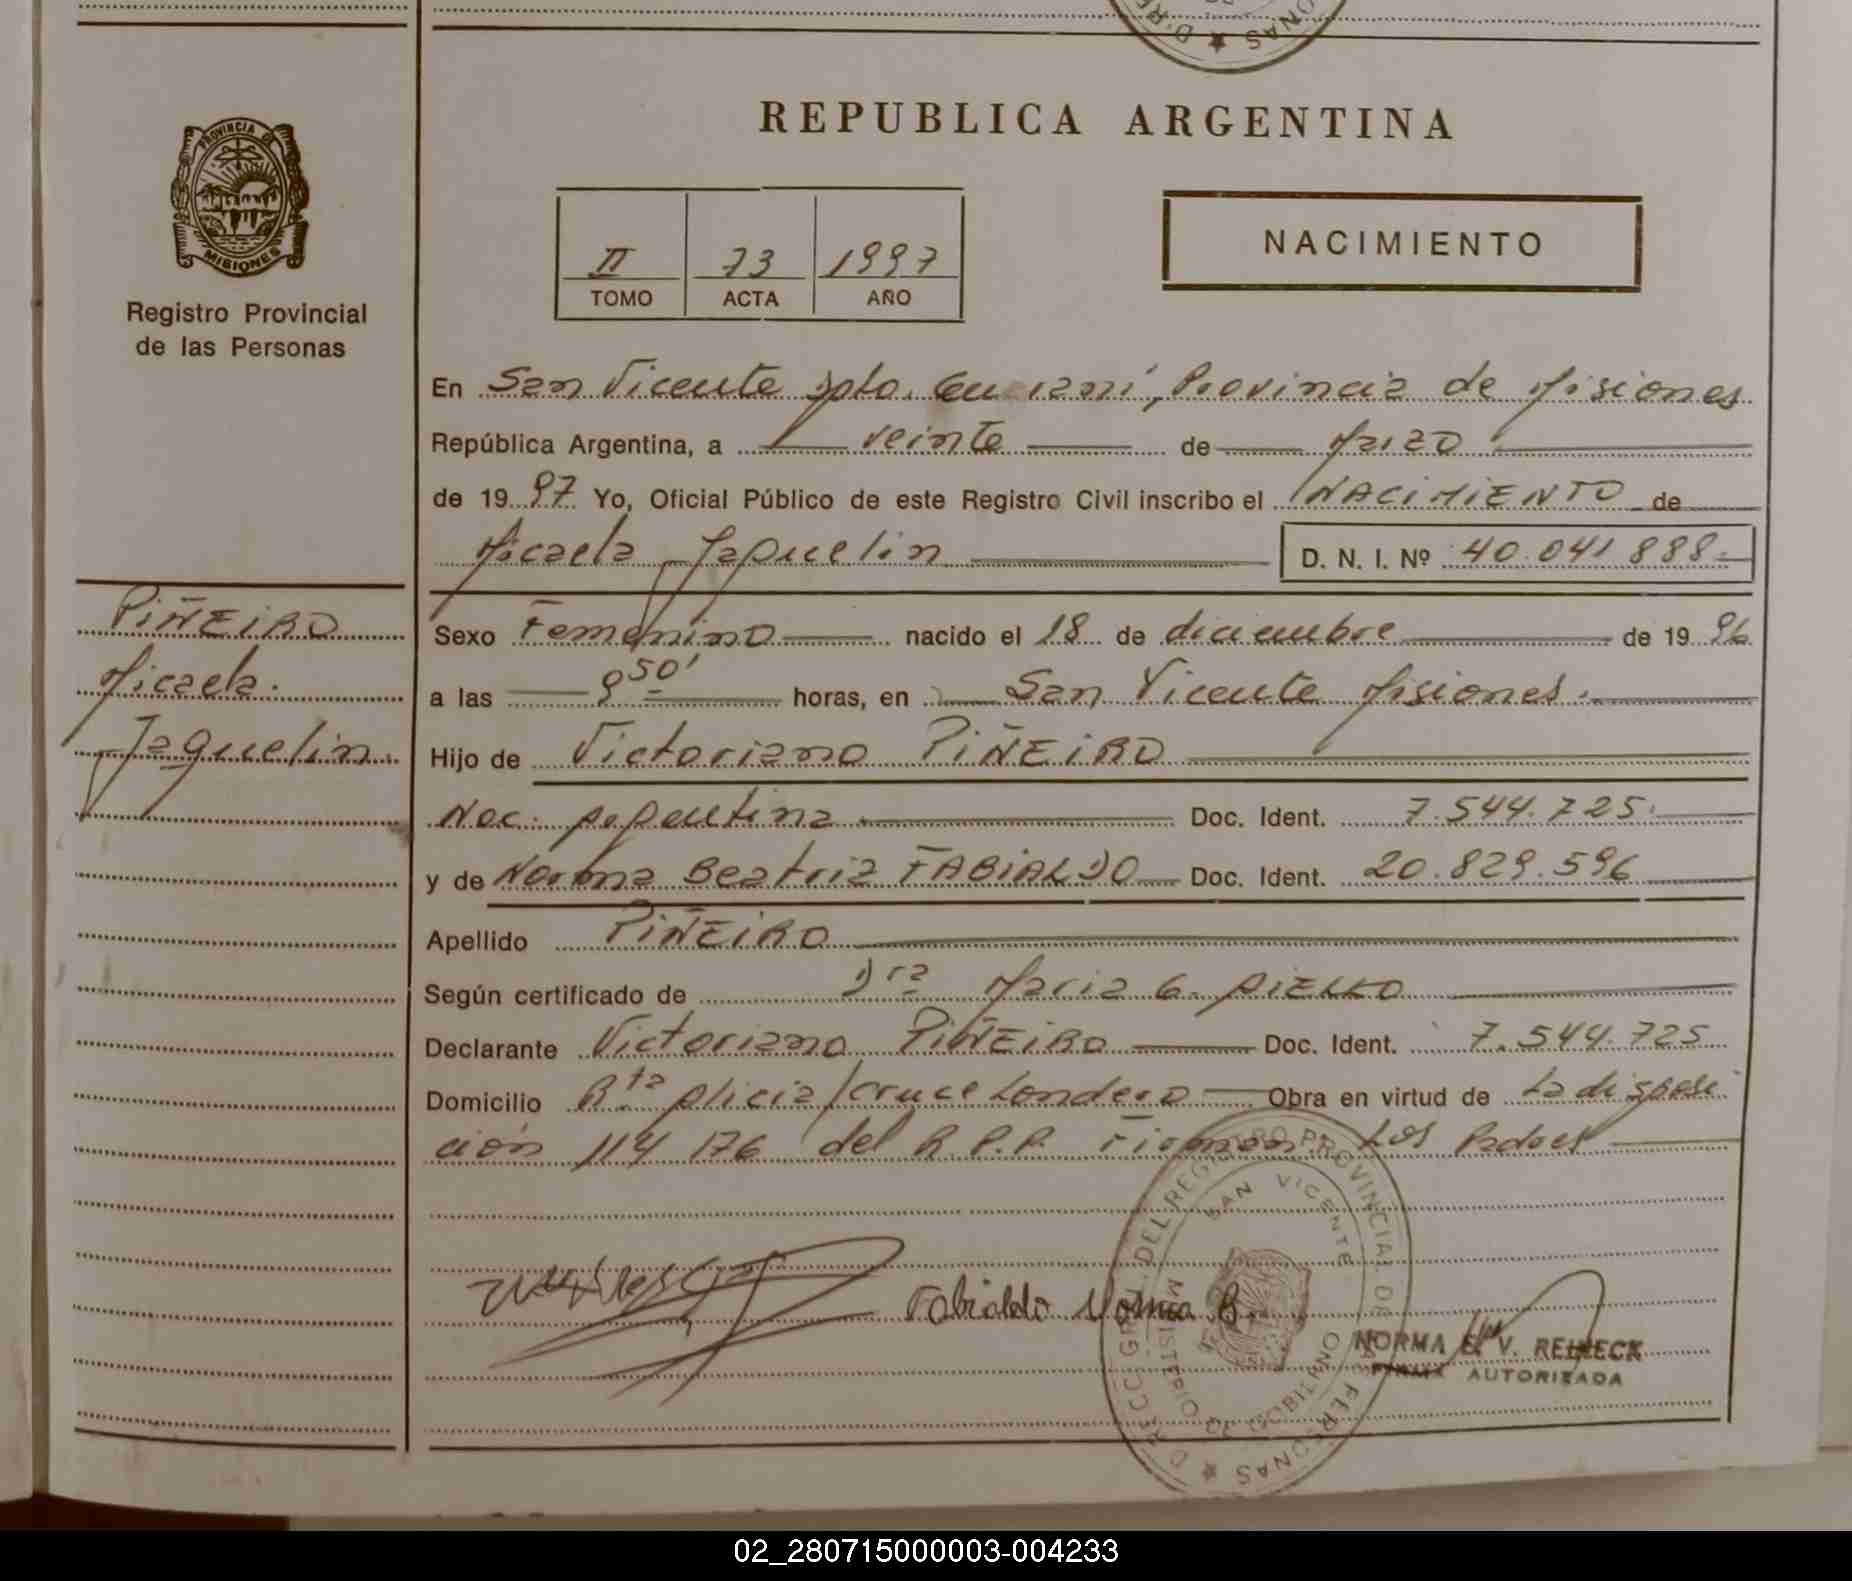 REPUBLICA ARGENTINA
PROVINCIA DE
MISIONES
Registro Provincial
de las Personas
II 73 1997
TOMO ACTA AÑO
NACIMIENTO
En San Vicente Dpto. Guaraní, Provincia de Misiones
República Argentina, a veinte de Marzo
de 1997 Yo, Oficial Público de este Registro Civil inscribo el NACIMIENTO de
Micaela Jaquelin D. N. I. Nº 40.041.888.
PIÑEIRO
Micaela.
Jaquelin.
Sexo Femenino nacido el 18 de diciembre de 1996
a las 8 50' horas, en San Vicente Misiones.
Hijo de Victoriano PIÑEIRO
Nac. Argentina Doc. Ident. 7.544.725.
y de Norma Beatriz FABIALDO Doc. Ident. 20.829.596
Apellido PIÑEIRO
Según certificado de Dra Maria G. AIELLO
Declarante Victoriano PIÑEIRO Doc. Ident. 7.544.725
Domicilio Rta Alicia/Cruce Londero Obra en virtud de La disposi
ción 114/176 del R.P.P. Firman: Los Padres
DIRECC. GRAL. DEL REGISTRO PROVINCIAL DE LAS PERSONAS
SAN VICENTE
MINISTERIO DE GOBIERNO
Fabialdo Norma B.
NORMA E. V. REINECK
FIRMA AUTORIZADA
02_280715000003-004233